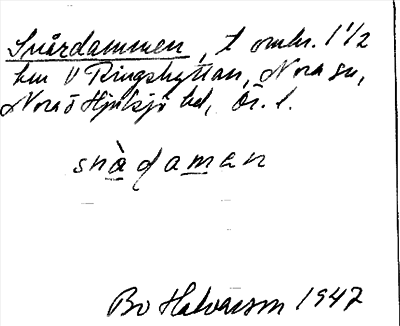 Snårdammen, t omkr. 1 1/2
km V Ringshyttan, Nora sn,
Nora o Hjulsjö hd, Ör. l.
snàdaman
Bo Halvarson 1947